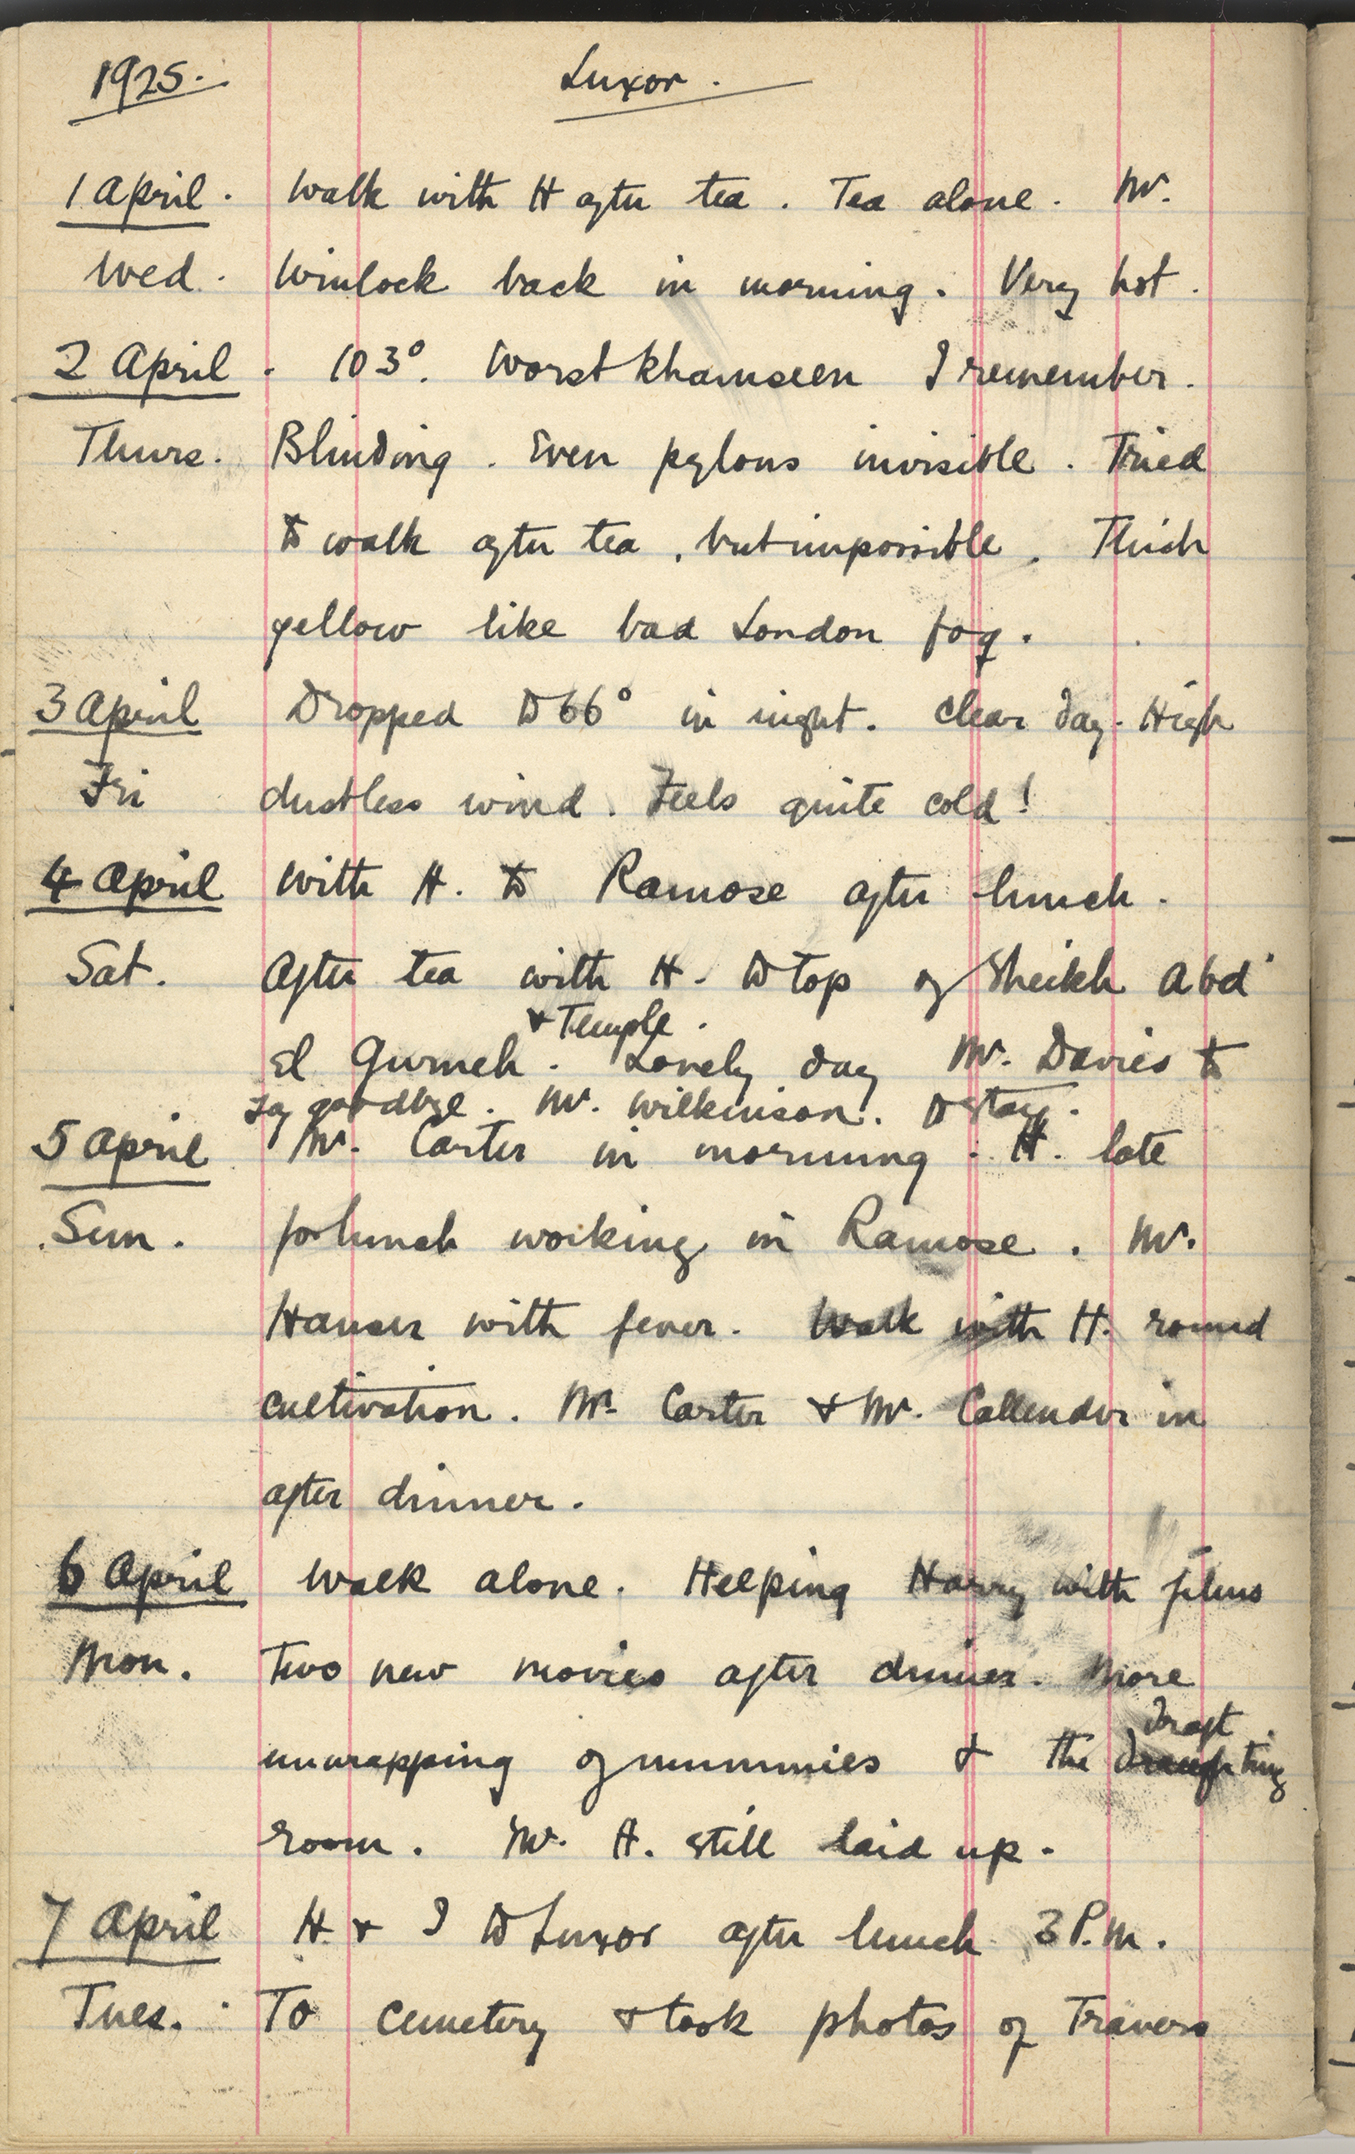 1925. Luxor.
1 April. Walk with H after tea. Tea alone. Mr.
Wed. Winlock back in morning. Very hot.
2 April. 103°. Worst khamseen I remember.
Thurs. Blinding. Even pylons invisible. Tried
to walk after tea, but impossible. Thick
yellow like bad London fog.
3 April Dropped to 66° in night. Clear day. High
Fri dustless wind. Feels quite cold!
4 April With H. to Ramose after lunch.
Sat. After tea with H. to top of Sheikh Abd
& Temple.
el Gurneh. Lovely day Mr. Davies to
say goodbye. Mr. Wilkinson. to stay.
5 April Mr. Carter in morning. H. late
Sun. for lunch working in Ramose. Mr.
Hauser with fever. Walk with H. round
cultivation. Mr. Carter & Mr. Callender in
after dinner.
6 April Walk alone. Helping Harry with films
Mon. Two new movies after dinner. More
draft
unwrapping of mummies & the draughting
room. Mr. H. still laid up.
7 April H & I to Luxor after lunch 3 P.M.
Tues. To cemetery & took photos of Travers